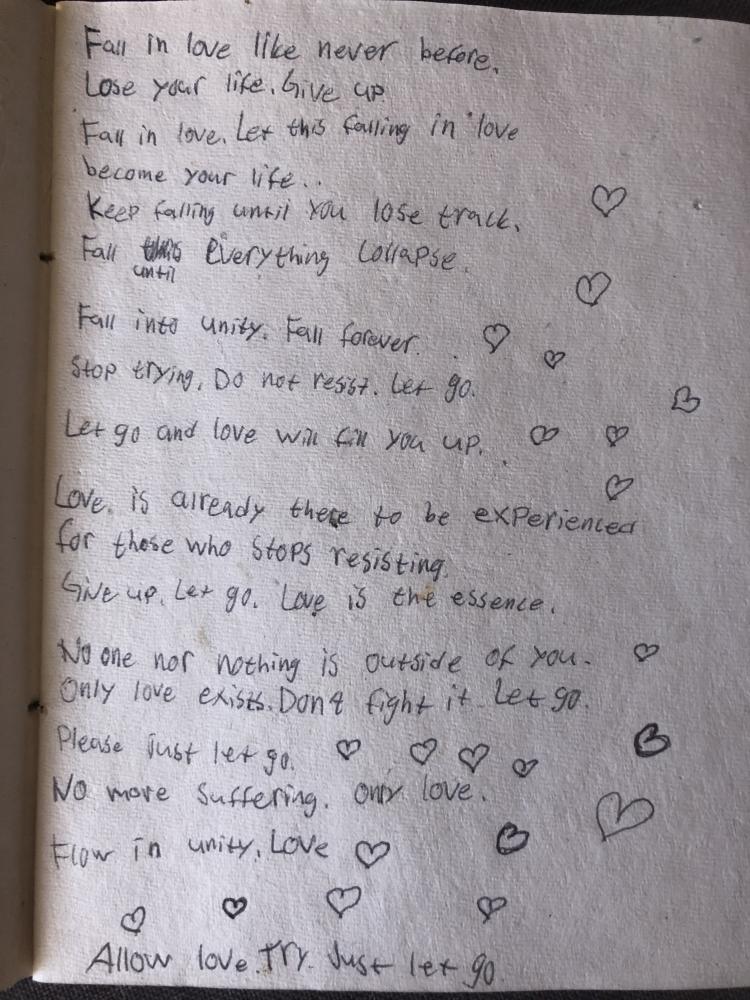 Fall in love like never before.
Lose your life. Give up
Fall in love. Let this falling in love
become your life..
Keep falling until you lose track.
Fall this everything collapse.
until
Fall into unity. Fall forever.
Stop trying. Do not resist. Let go.
Let go and love will fill you up.
Love is already there to be experienced
for those who stops resisting.
Give up. Let go. Love is the essence.
No one nor nothing is outside of you.
Only love exists. Don't fight it. Let go.
Please just let go.
No more suffering. Only love.
Flow in unity. Love
Allow love. Try. Just let go